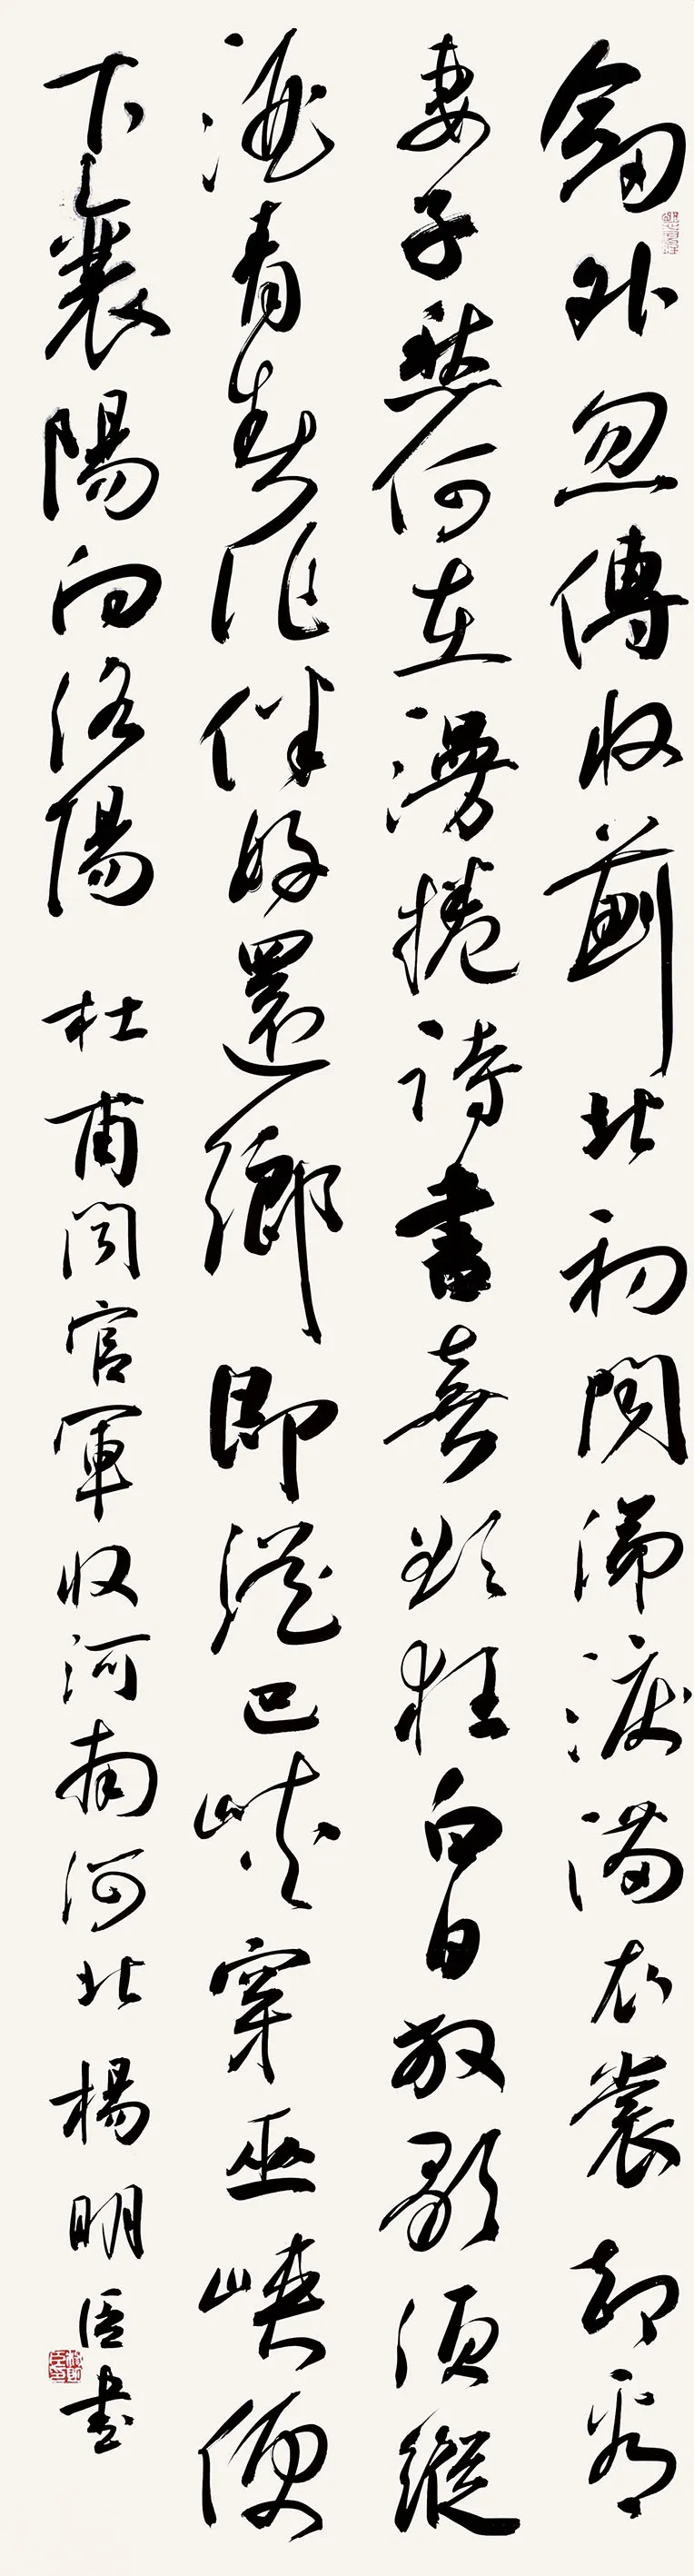 劍外忽傳收薊北初聞涕淚滿衣裳却看
妻子愁何在漫捲詩書喜欲狂白日放歌須縱
酒青春作伴好還鄉即從巴峽穿巫峽便
下襄陽向洛陽 杜甫聞官軍收河南河北 楊明臣書